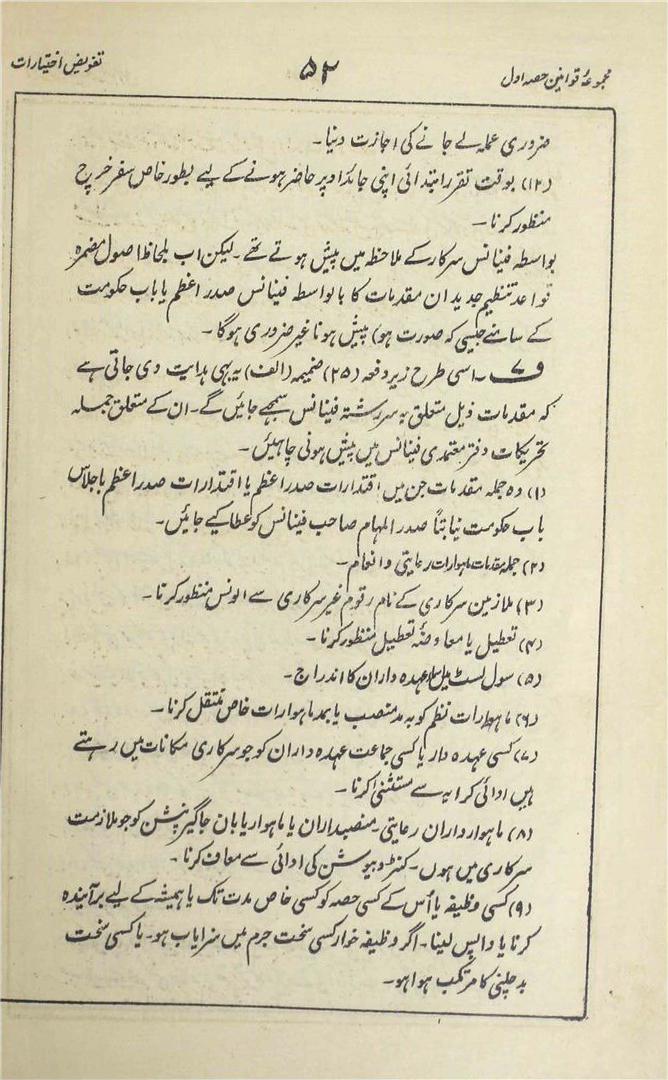 مجموعۂ قوانین حصہ اول
۵۲
تفویض اختیارات
ضروری عملہ لے جانے کی اجازت دینا۔
(۱۲) بوقت تقرر ابتدائی اپنی جائداد پر حاضر ہونے کے لیے بطور خاص سفر خرچ
منظور کرنا۔
بواسطہ فینانس سرکار کے ملاحظہ میں پیش ہوتے تھے۔ لیکن اب بلحاظ اصول مضمرہ
قواعد تنظیم جدید ان مقدمات کا بالواسطہ فینانس صدر اعظم یا باب حکومت
کے سامنے جیسی کہ صورت ہو) پیش ہونا غیر ضروری ہوگا۔
ف۷۔ اسی طرح زیر دفعہ (۲۵) ضمیمہ (الف) یہ بہی ہدایت دی جاتی ہے
کہ مقدمات ذیل متعلق بہ سررشتہ فینانس سمجھے جائیں گے۔ ان کے متعلق جملہ
تحریکات دفتر معتمدی فینانس میں پیش ہونی چاہئیں۔
(۱) وہ جملہ مقدمات جن میں اقتدارات صدر اعظم یا اقتدارات صدر اعظم باجلاس
باب حکومت نیابتاً صدر المہام صاحب فینانس کو عطا کیے جائیں۔
(۲) جملہ مقدمات ماہوارات رعایتی و انعام۔
(۳) ملازمین سرکاری کے نام رقوم غیر سرکاری سے الونس منظور کرنا۔
(۴) تعطیل یا معاوضۂ تعطیل منظور کرنا۔
(۵) سول لسٹ میں عہدہ داران کا اندراج۔
(۶) ماہوارات نظم کو بہ مد منصب یا بمد ماہوارات خاص منتقل کرنا۔
(۷) کسی عہدہ دار یا کسی جماعت عہدہ داران کو جو سرکاری مکانات میں رہتے
ہیں ادائی کرایہ سے مستثنیٰ کرنا۔
(۸) ماہوار داران رعایتی۔ منصبداران یا ماہوار یابان جاگیر پنشن کو جو ملازمت
سرکاری میں ہوں۔ کنٹروبیوشن کی ادائی سے معاف کرنا۔
(۹) کسی وظیفہ یا اُس کے کسی حصہ کو کسی خاص مدت تک یا ہمیشہ کے لیے برآیندہ
کرنا یا واپس لینا۔ اگر وظیفہ خوار کسی سخت جرم میں سزایاب ہو۔ یا کسی سخت
بدچلنی کا مرتکب ہوا ہو۔